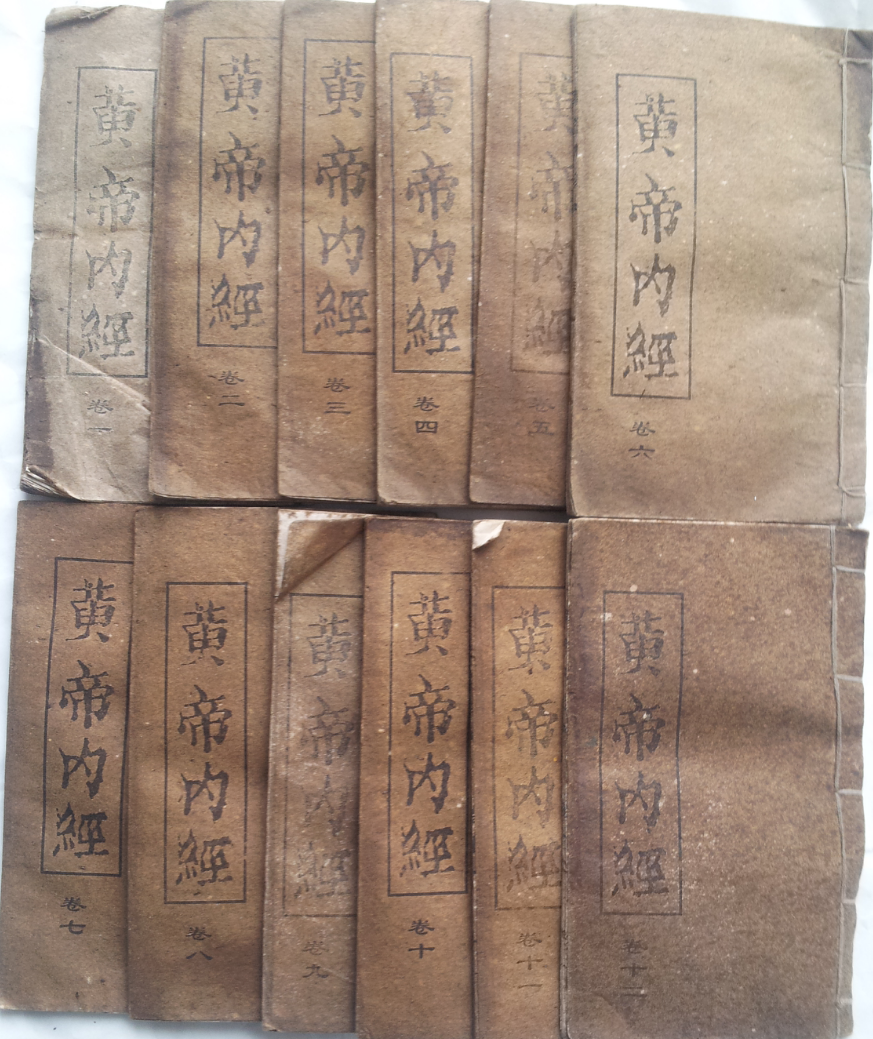 黄帝内經
卷一
黄帝内經
卷二
黄帝内經
卷三
黄帝内經
卷四
黄帝内經
卷五
黄帝内經
卷六
黄帝内經
卷七
黄帝内經
卷八
黄帝内經
卷九
黄帝内經
卷十
黄帝内經
卷十一
黄帝内經
卷十二